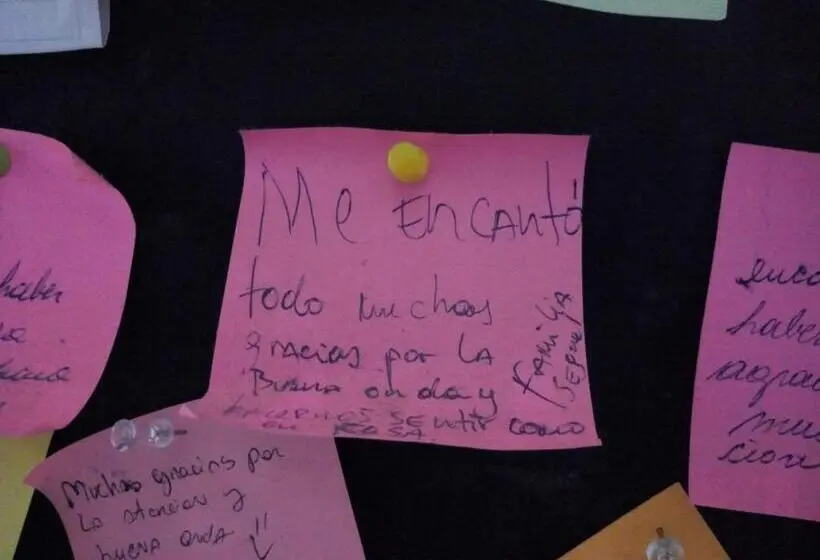 Me EncAntó
todo muchas
gracias por LA
Buena onda y
hacernos SEntir como
en CASA.
FAMiLiA
SEpuL
Muchas gracias por
La atencion y
buena onda !!
haber
enca
haber
agrad
muc
cion